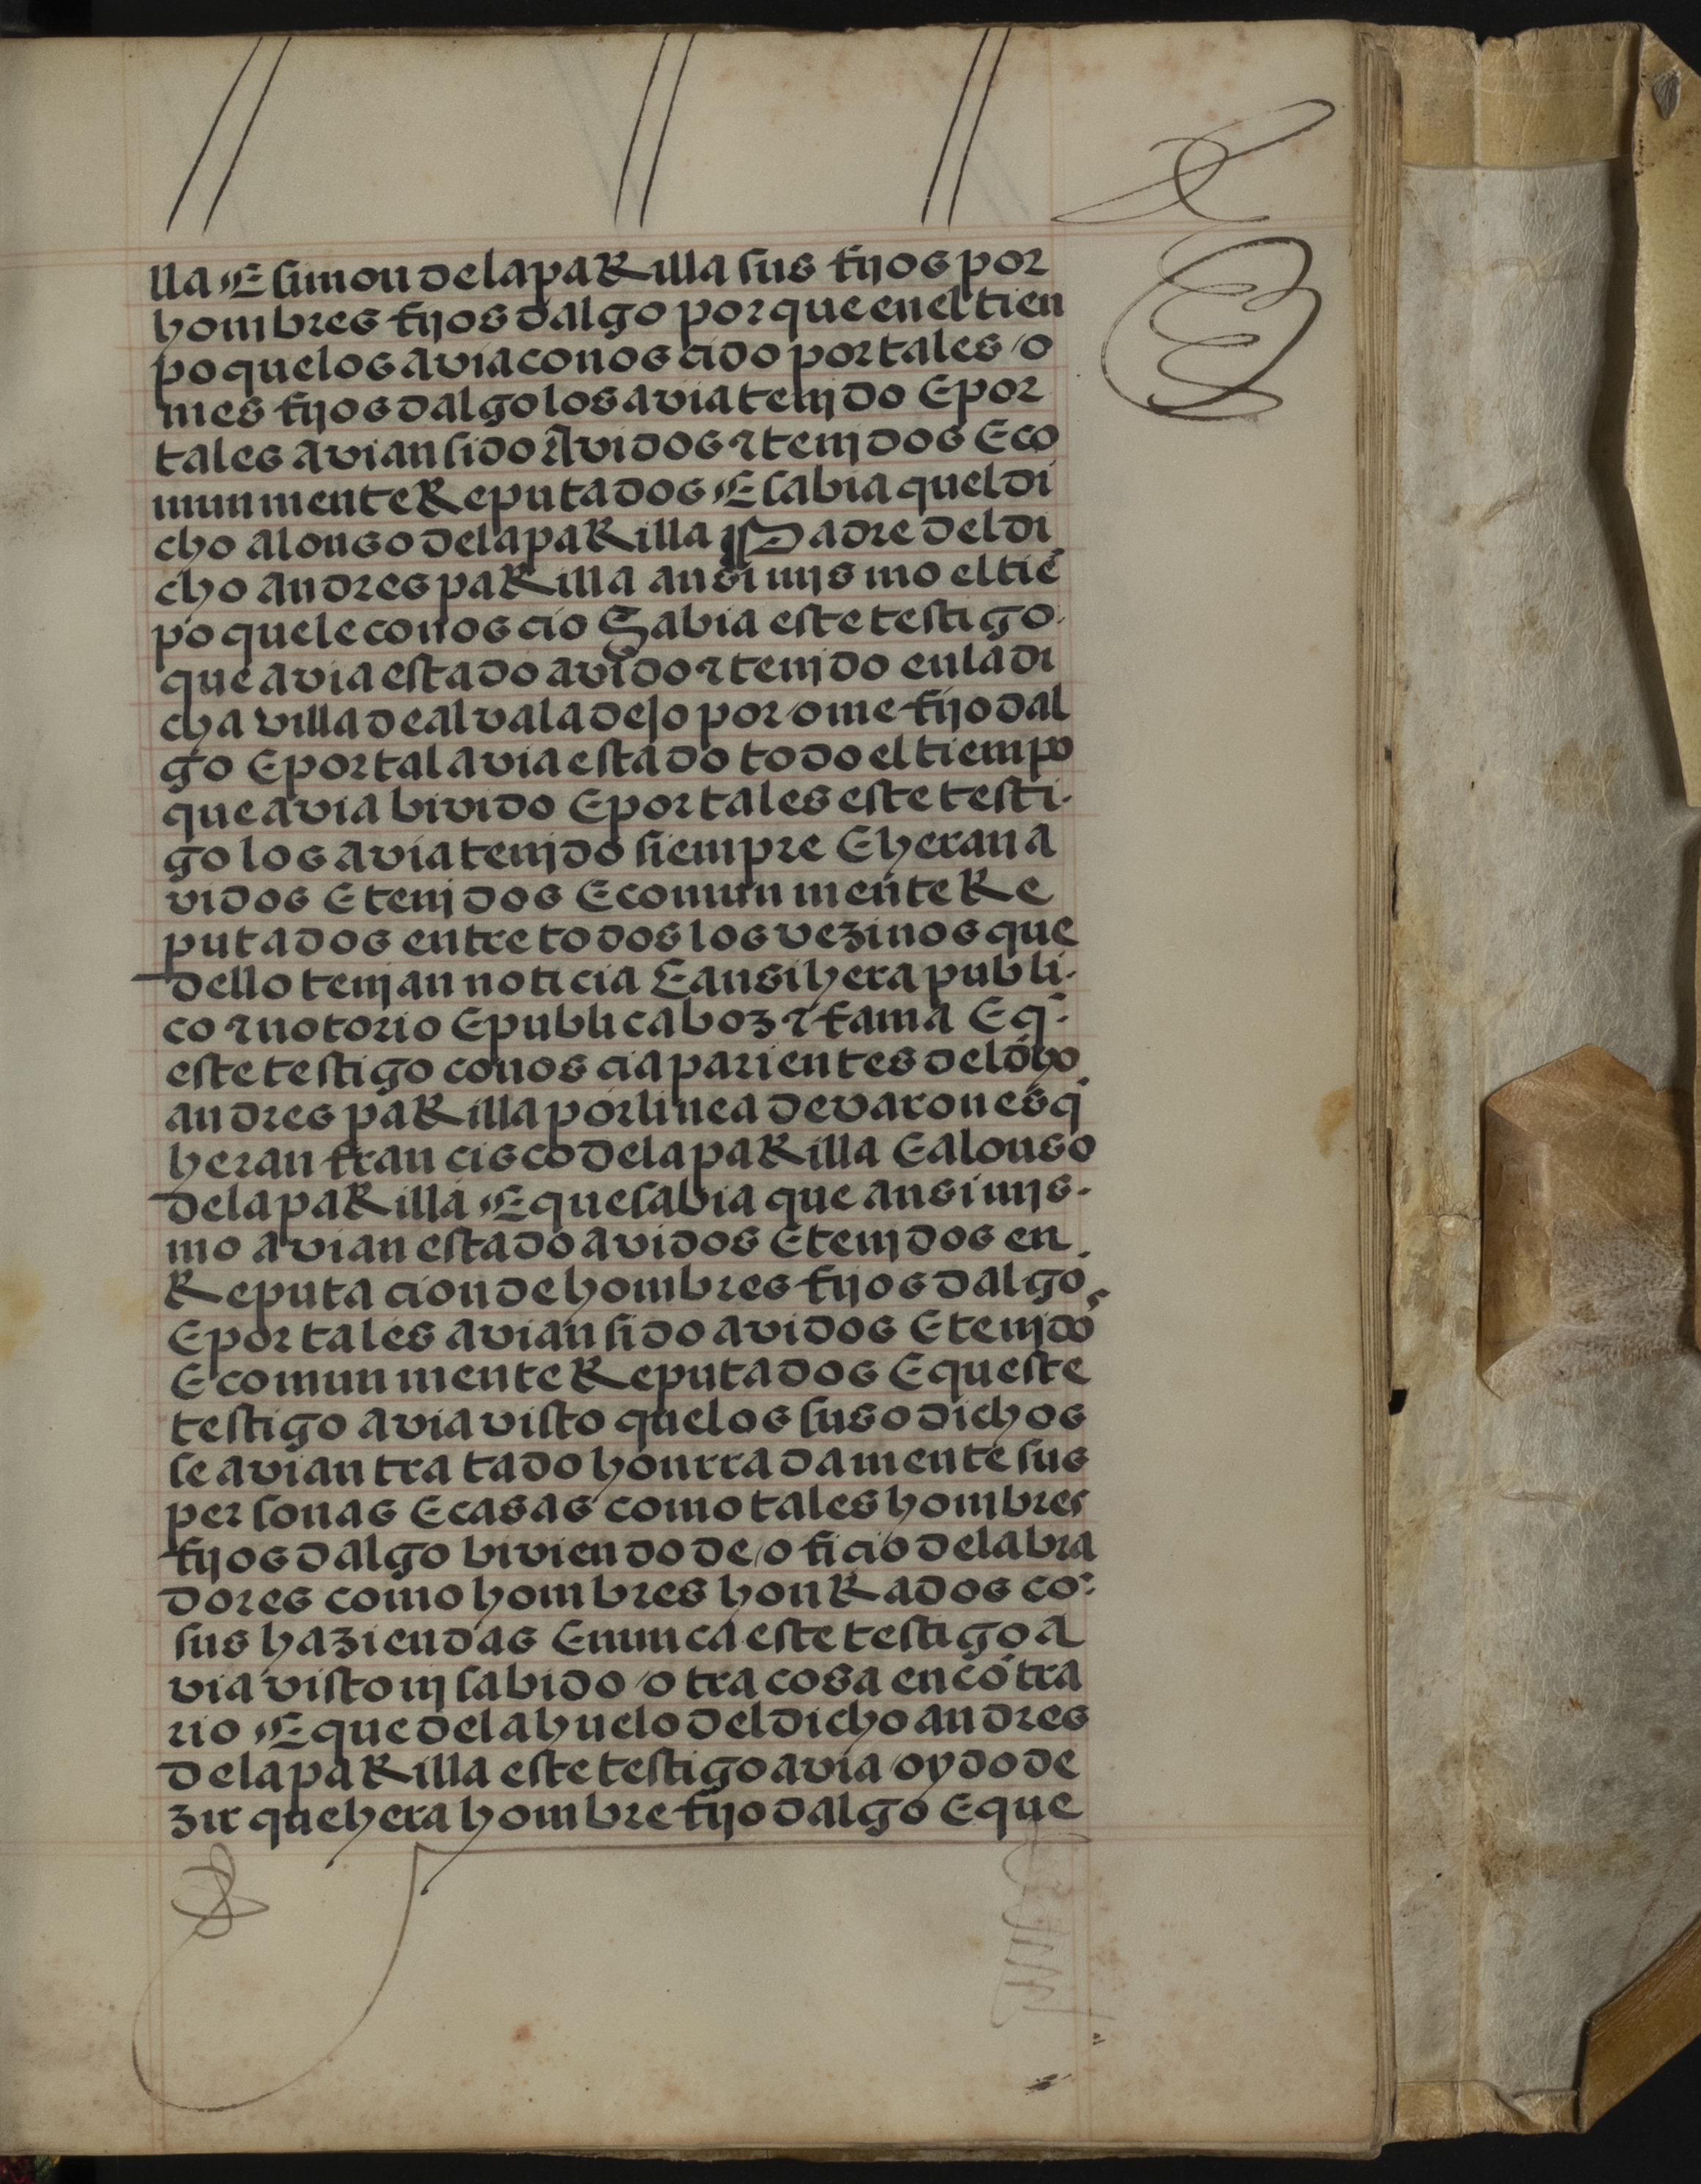 lla E simon de la paRilla sus fijos por
hombres fijos dalgo por que en el tien
po que los avia conoscido por tales o
mes fijos dalgo los avia tenjdo E por
tales avian sido Avidos ⁊ tenjdos E co
munmente Reputados E sabia quel di
cho alonso de la paRilla padre del di
cho andres paRilla ansi mjsmo el tiē
po que le conoscio Sabia este testigo
que avia estado avido ⁊ tenjdo en la di
cha villa de alvaladejo por ome fijo dal
go E por tal avia estado todo el tiempo
que avia bivido E por tales este testi
go los avia tenjdo siempre E heran a
vidos E tenjdos E comun mente Re
putados entre todos los vezinos que
dello tenjan noticia E ansi hera publi
co ⁊ notorio E publica boz ⁊ fama E q̄
este testigo conoscia parientes del dho
andres paRilla por linea de varones q̄
heran francisco de la paRilla E alonso
de la paRilla E que sabia que ansi mjs
mo avian estado avidos E tenjdos en
Reputacion de hombres fijos dalgo
E por tales avian sido avidos E tenjdos
E comun mente Reputados E queste
testigo avia visto que los suso dichos
se avian tratado honrradamente sus
personas E casas como tales hombres
fijos dalgo biviendo de oficio de labra
dores como hombres honRados cō
sus haziendas E nunca este testigo a
via visto nj sabido otra cosa en cōtra
rio E que del ahuelo del dicho andres
de la paRilla este testigo avia oydo de
zir que hera hombre fijo dalgo E que